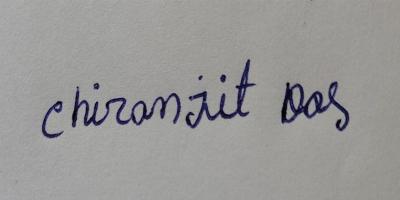 chiranjit Das